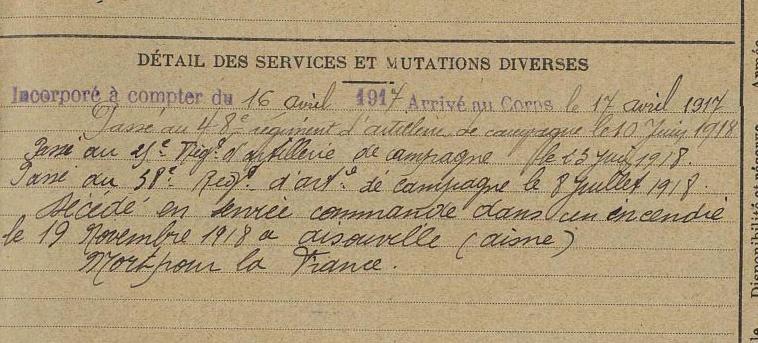 DÉTAIL DES SERVICES ET MUTATIONS DIVERSES
Incorporé à compter du 16 avril 1917 Arrivé au Corps le 17 avril 1917
Passé au 48e régiment d'artillerie de campagne le 10 Juin 1918
Passé au Régt d'artillerie de campagne le 23 juin 1918.
Passé au 38e Régt d'arte de campagne le 8 Juillet 1918.
Décédé en service commandé dans un incendie
le 19 Novembre 1918 a aisonville (aisne)
Mort pour la France.
Disponibilité et réserve
Armée